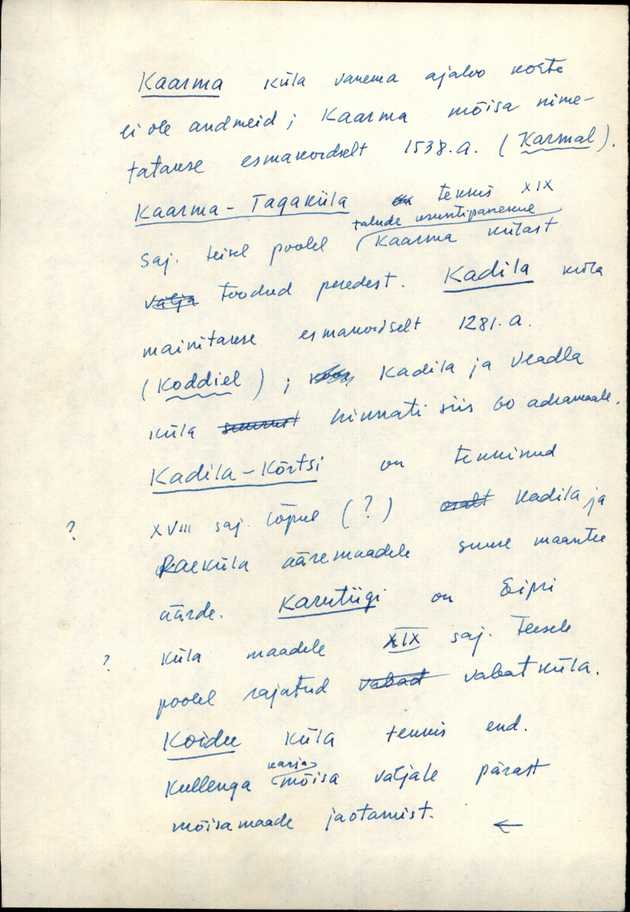 Kaarma küla vanema ajaloo kohta
ei ole andmeid; Kaarma mõisa nime-
tatakse esmakordselt 1538.a. (Karmal).
Kaarma-Tagaküla tekkis XIX
talude
saj. teisel poolel Kaarma külast
välja toodud peredest. Kadila küla
mainitakse esmakordselt 1281.a.
(Koddiel); Kadila ja Veadla
küla suurust hinnati siis 60 adramaale.
Kadila-Kõrtsi on tekkinud
? XVIII saj. lõpul (?) osalt Kadila ja
Raeküla ääremaadele suure maantee
äärde. Karutiigi on Eipri
? küla maadele XIX saj. teisele
poolel rajatud vabad vabatküla.
Koidu küla tekkis end.
karja
Kullenga mõisa väljale pärast
mõisamaade jaotamist. ←